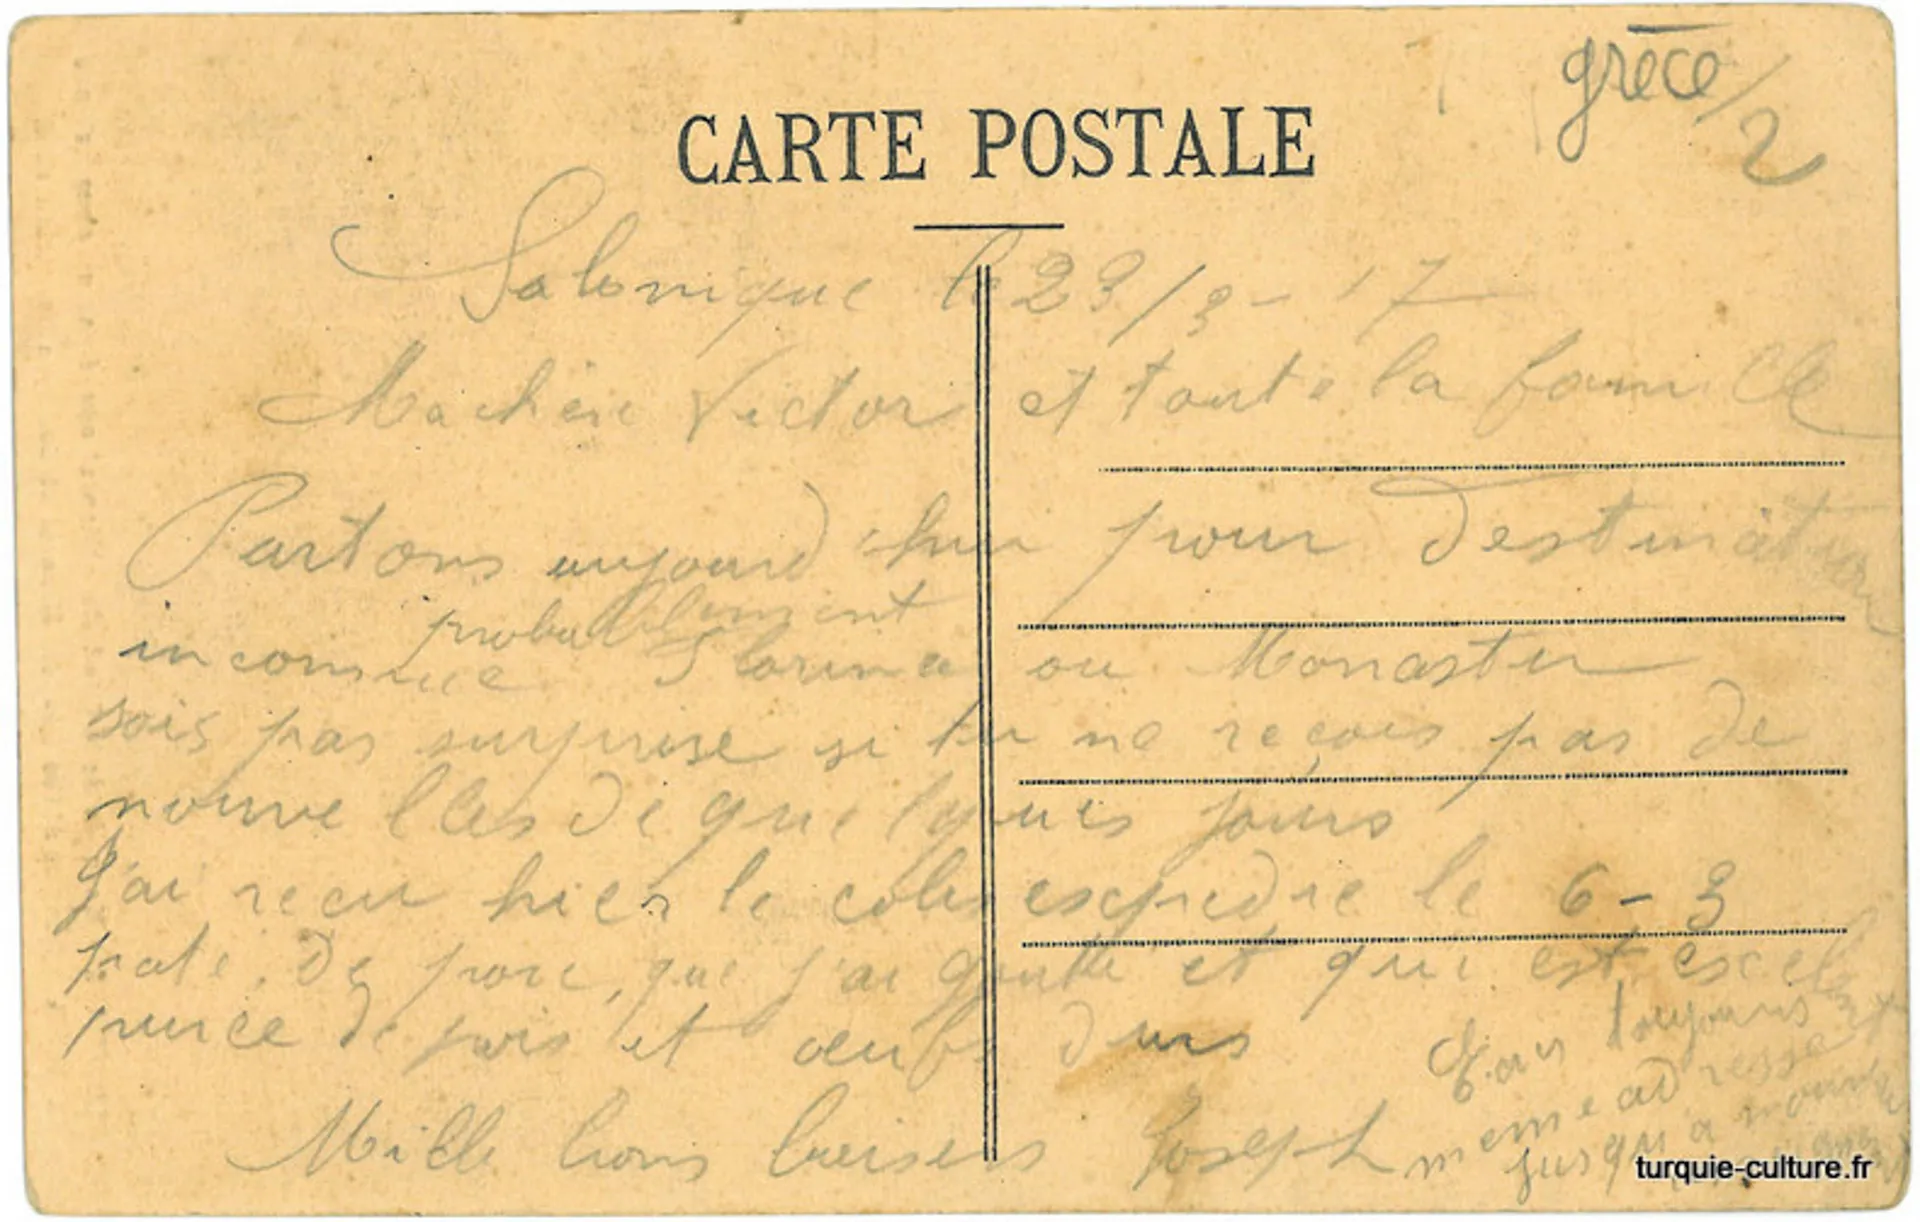 grece/2
CARTE POSTALE
Salonique le 23/3-17
Ma chère Victor et toute la famille
Partons aujourd'hui pour destination
inconnue probablement Florina ou Monastir
sois pas surprise si tu ne reçois pas de
nouvelles de quelques jours
J'ai reçu hier le colis expedre le 6-3
paté. De porc, que j'ai goutté et qui est excel
puree de pois et œufs durs
Mille bons baisers Joseph
toujours
meme adresse
jusqu'a nouvel
turquie-culture.fr